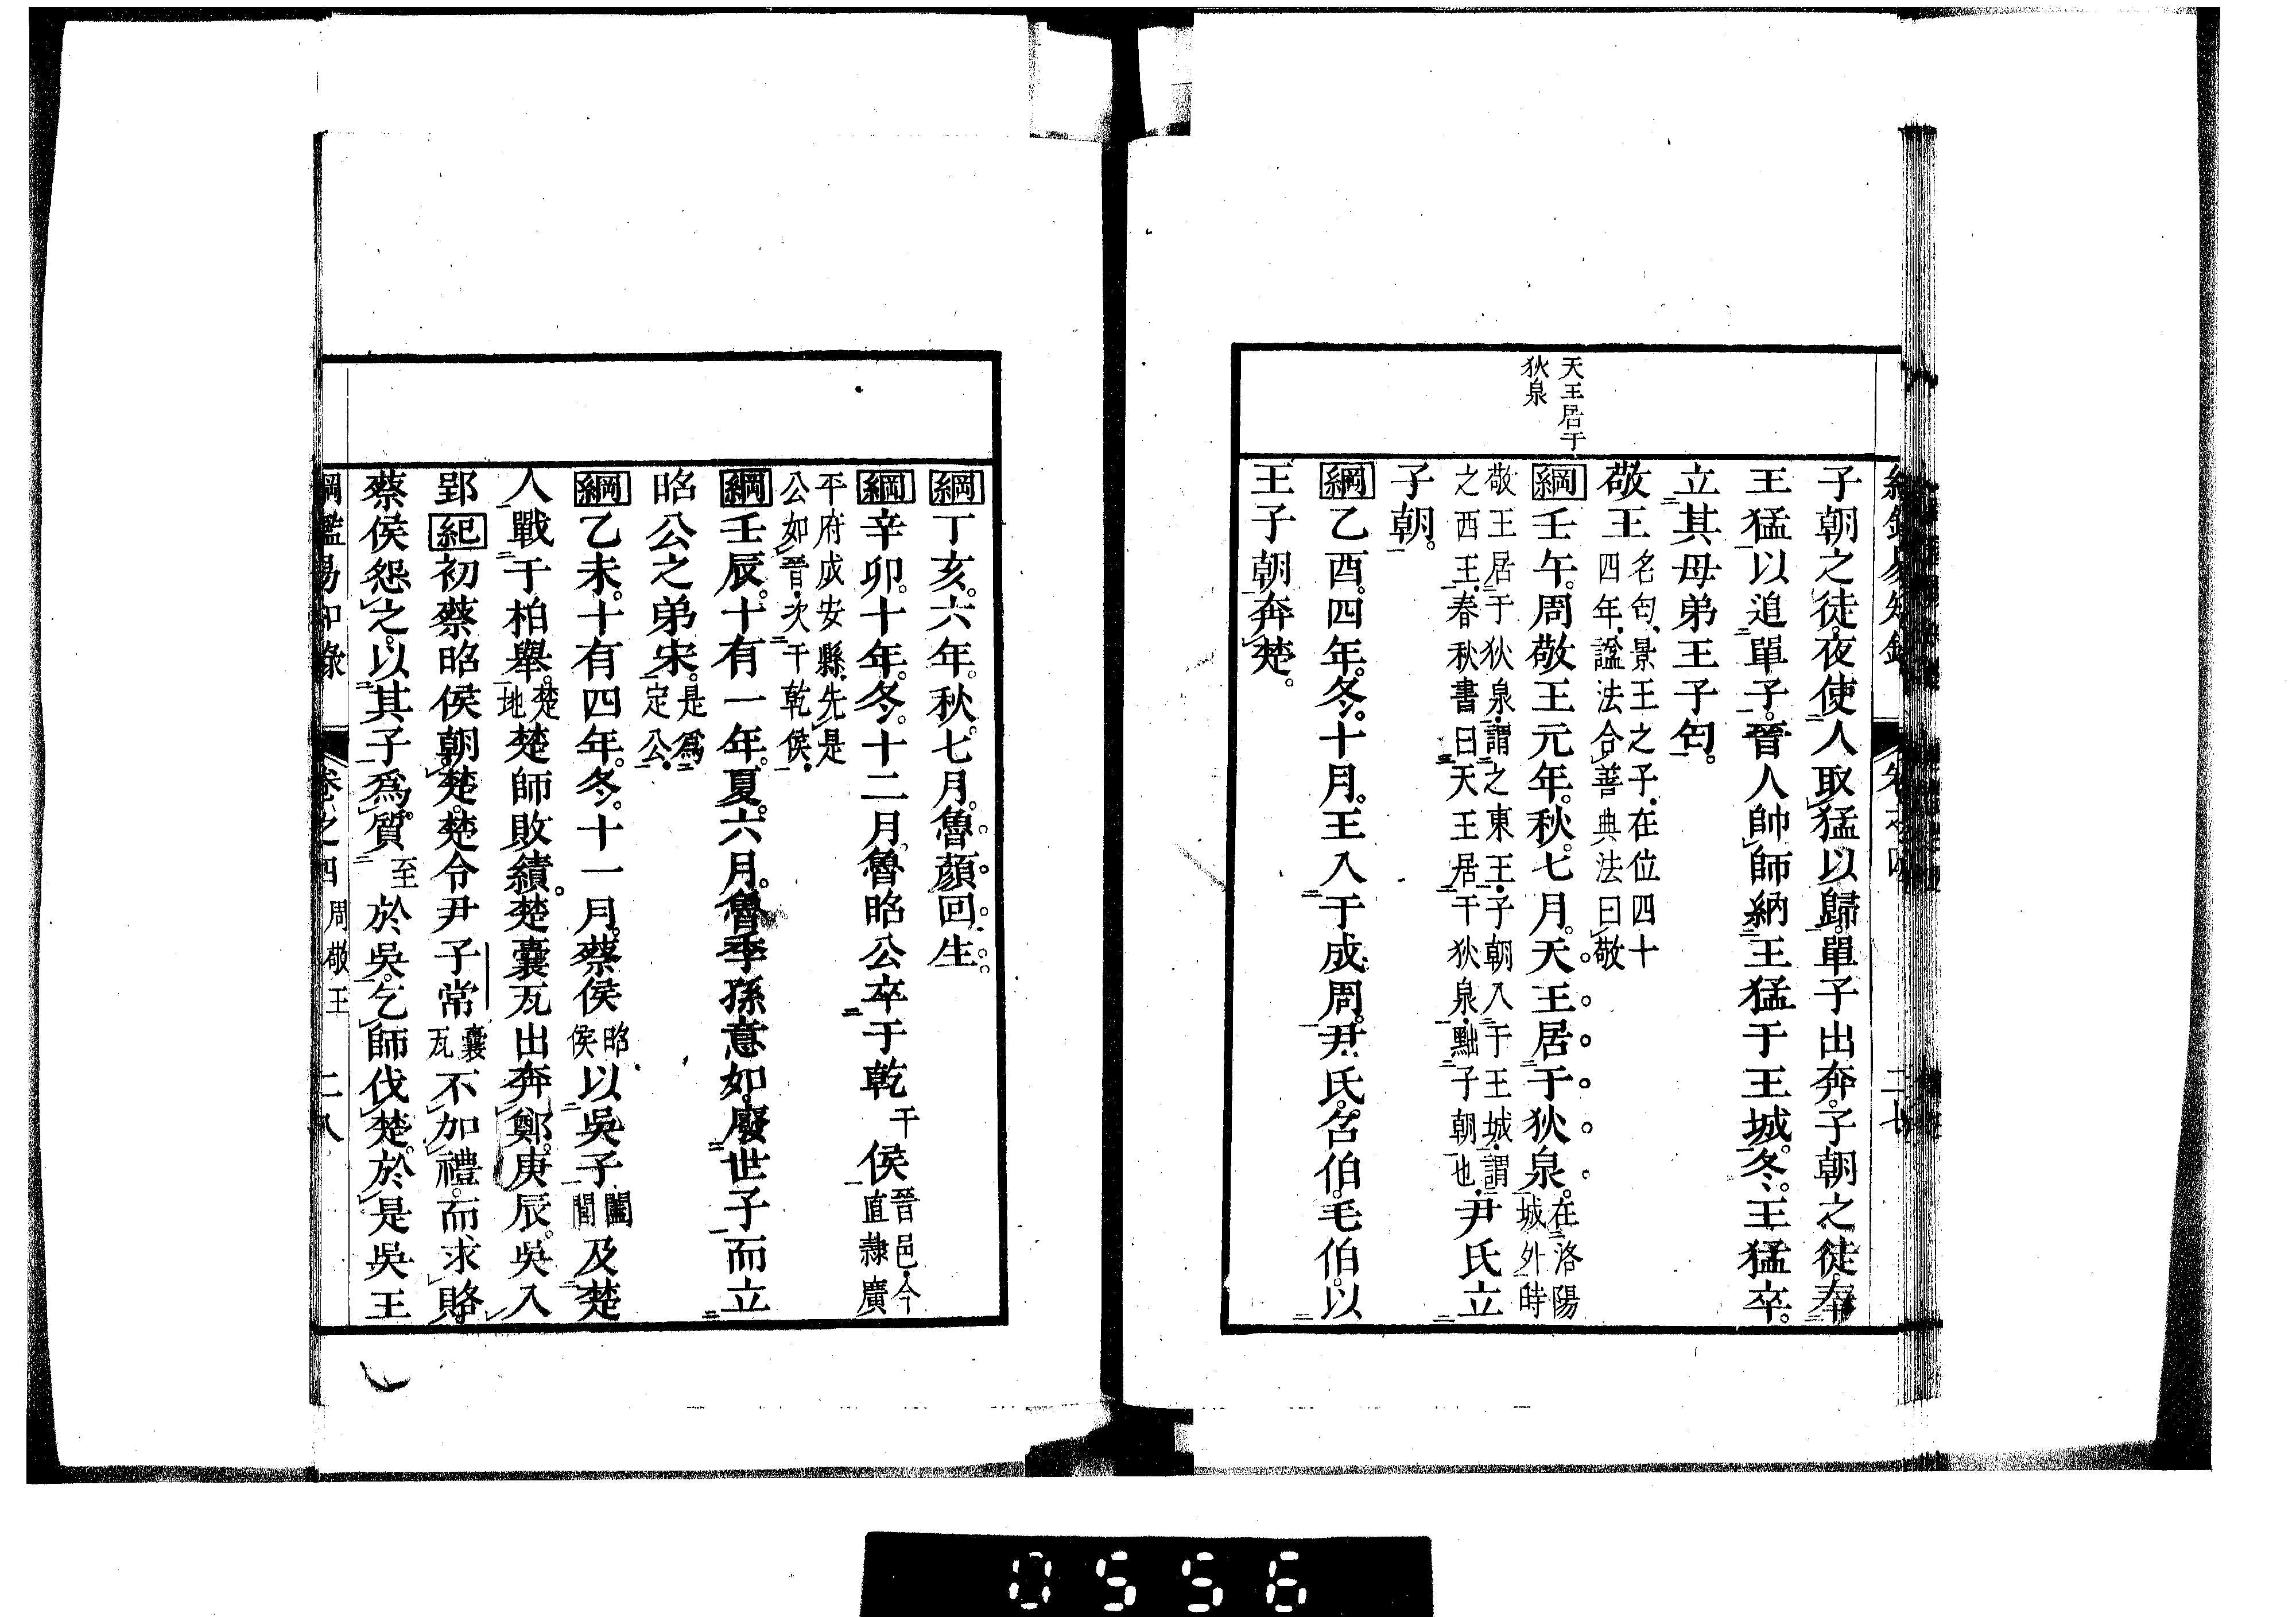 天王居于
狄泉
子朝之徒。夜使人取猛以歸。單子出奔。子朝之徒。奉
王猛以追單子。晉人帥師納王猛于王城。冬。王猛卒。
立其母弟王子匄。
敬王名匄。景王之子。在位四十四年。諡法合善典法曰敬
綱壬午。周敬王元年。秋。七月。天王居于狄泉。在洛陽城外時
敬王居于狄泉。謂之東王。子朝入于王城。謂之西王。春秋書曰天王居于狄泉。黜子朝也。尹氏立
子朝。
綱乙酉。四年。冬。十月。王入于成周。尹氏。召伯。毛伯。以
王子朝奔楚。
綱丁亥。六年。秋。七月。魯顏回生。
綱辛卯。十年。冬。十二月。魯昭公卒于乾干侯晉邑。今直隸廣
平府成安縣。先是公如晉。次于乾侯。
綱壬辰。十有一年。夏。六月。魯季孫意如。廢世子而立
昭公之弟宋。是爲定公。
綱乙未。十有四年。冬。十一月。蔡侯昭侯以吳子闔閭及楚
人戰于柏舉。楚地楚師敗績。楚囊瓦出奔鄭。庚辰。吳入
郢紀初蔡昭侯朝楚。楚令尹子常囊瓦不加禮。而求賂。
蔡侯怨之。以其子爲質至於吳。乞師伐楚。於是吳王
綱鑑易知錄 卷之四 周敬王 二八